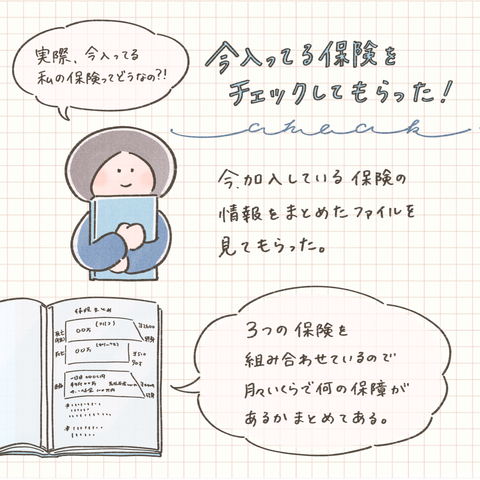 実際、今入ってる
私の保険ってどうなの?!
今入ってる保険を
チェックしてもらった!
今、加入している保険の
情報をまとめたファイルを
見てもらった。
保険まとめ
死亡
〇〇万
死亡
〇〇万
3つの保険を
組み合わせているので
月々いくらで何の保障が
あるかまとめてある。